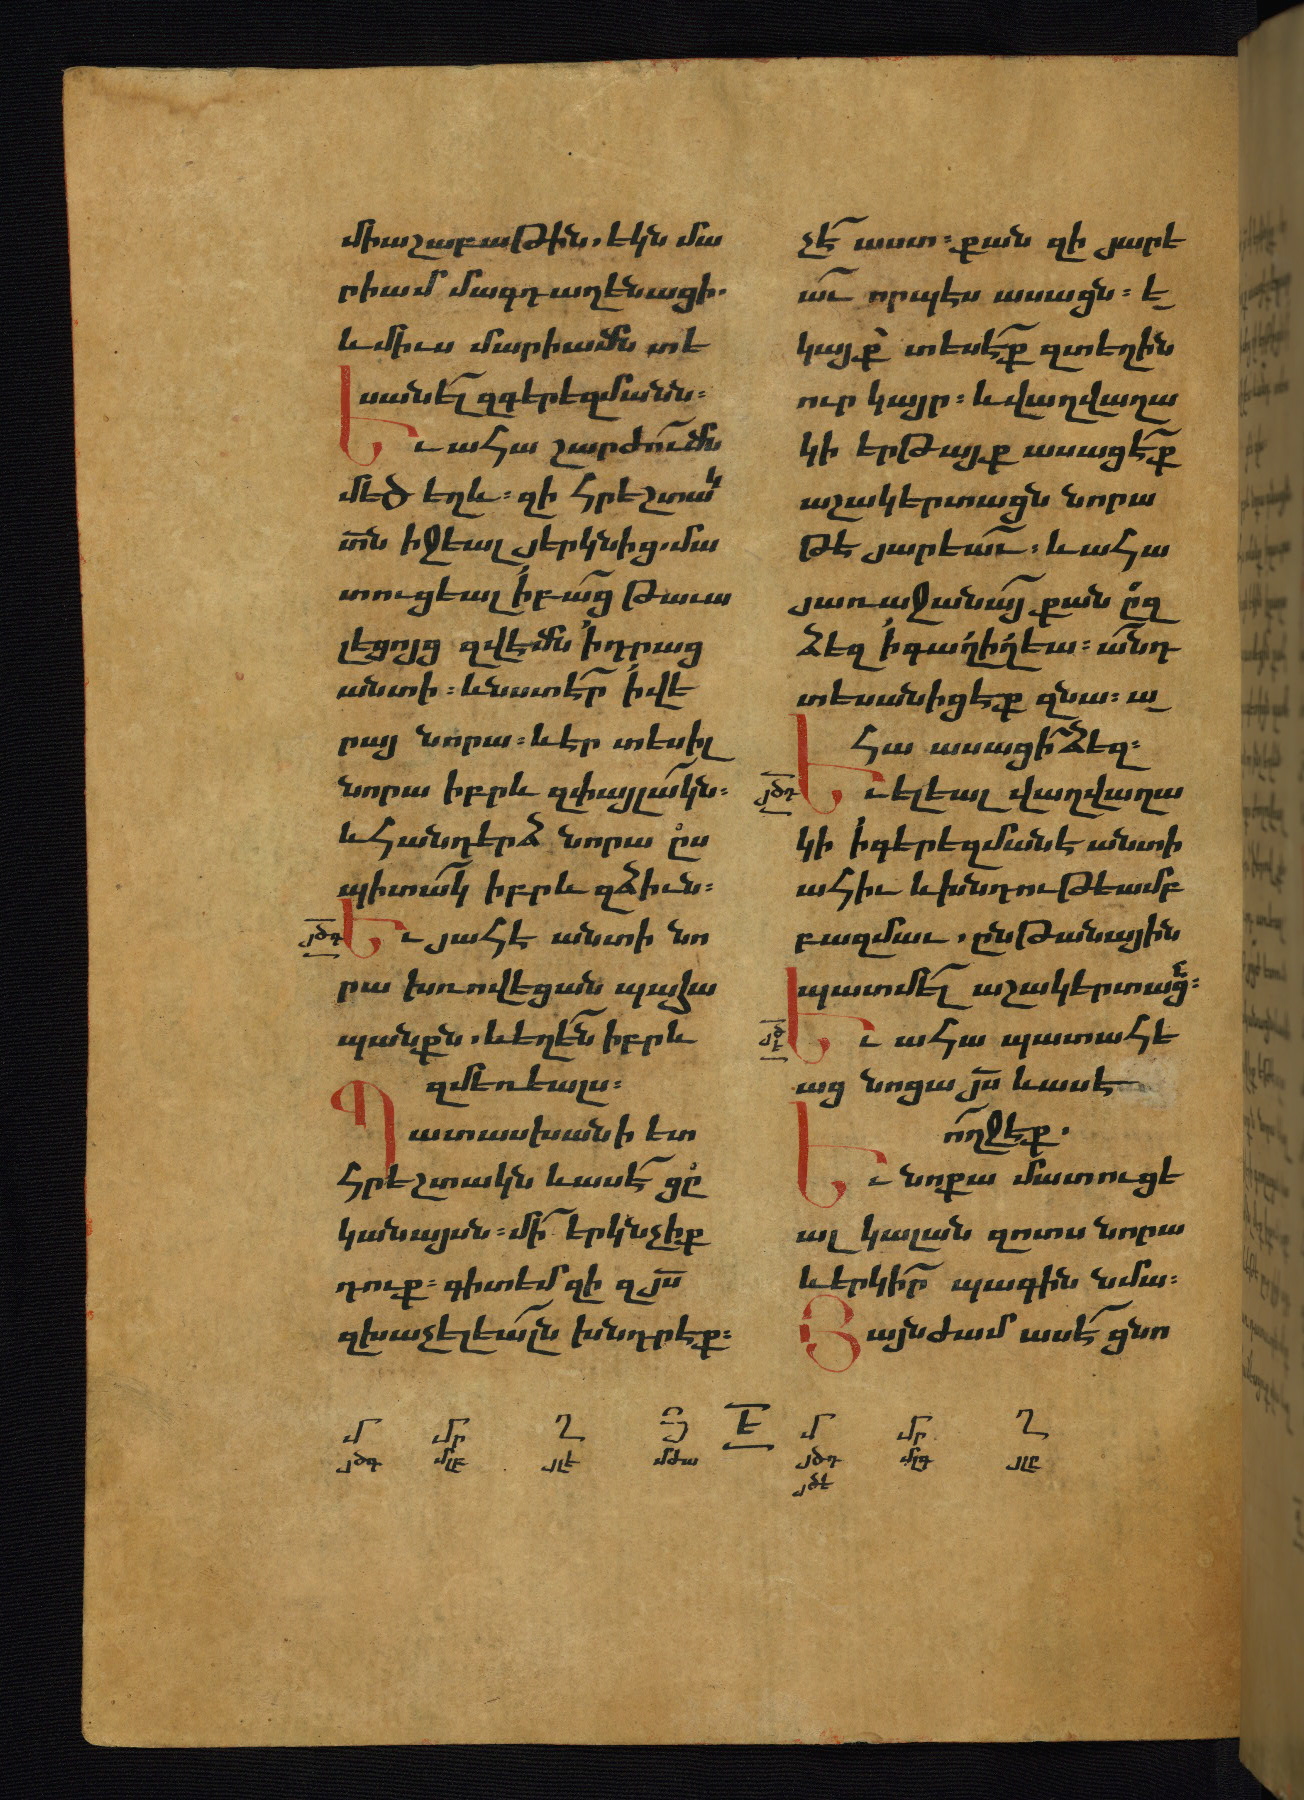 միաշաբաթին, եկն մա
րիամ մագդաղէնացի.
և միւս մարիամն տե
սանել զգերեզմանն:
Եւ ահա շարժումն
մեծ եղև: զի հրեշտակ
տն իջեալ յերկնից, մա
տուցեալ ի բաց թաւա
լեցոյց զվէմն ի դրաց
անտի: և նստէր ի վե
րայ նորա: և էր տեսիլ
նորա իբրև զփայլակն:
և հանդերձ նորա ըս
պիտակ իբրև զձիւն:
յծգ Եւ յահէ անտի նո
րա խռովեցան պահա
պանքն, և եղեն իբրև
զմեռեալս:
Պատասխանի ետ
հրեշտակն և ասէ ցը
կանայսն: մի երկնչիք
դուք: գիտեմ զի զյս
զխաչելեալն խնդրէք:
չէ աստ: քան զի յարե
աւ որպէս ասացն: ե
կայք տեսէք զտեղին
ուր կայր: և վաղվաղա
կի երթայք ասացէք
աշակերտացն նորա
թէ յարեաւ: և ահա
յառաջանայ քան ըզ
ձեզ ի գաղիղեա: անդ
տեսանիցէք զնա: ա
հա ասացի ձեզ:
յծդ Եւ ելեալ վաղվաղա
կի ի գերեզմանէ անտի
ահիւ և խնդութեամբ
բազմաւ, ընթանային
պատմել աշակերտացն:
յծե Եւ ահա պատահե
աց նոցա յս և ասէ
ողջ էք.
Եւ նոքա մատուցե
ալ կալան զոտս նորա
և երկիր պագին նմա:
Յայնժամ ասէ ցնո
մ մր ղ յ Է մ մր ղ
յծգ մլբ յլէ մժա յծդ մլգ յլը
յծե